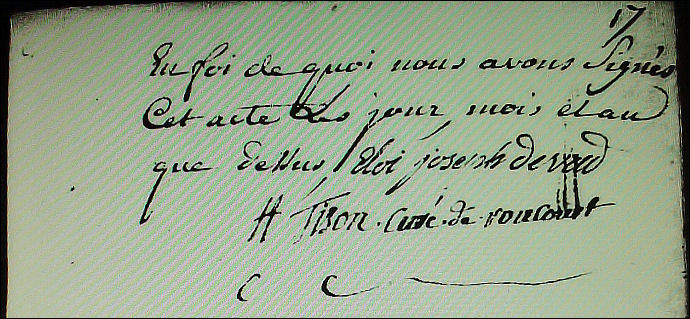 17
En foi de quoi nous avons Signés
Cet acte Les jour mois et an
que dessus Eloi joseph devred
H Tison Curé de roucourt